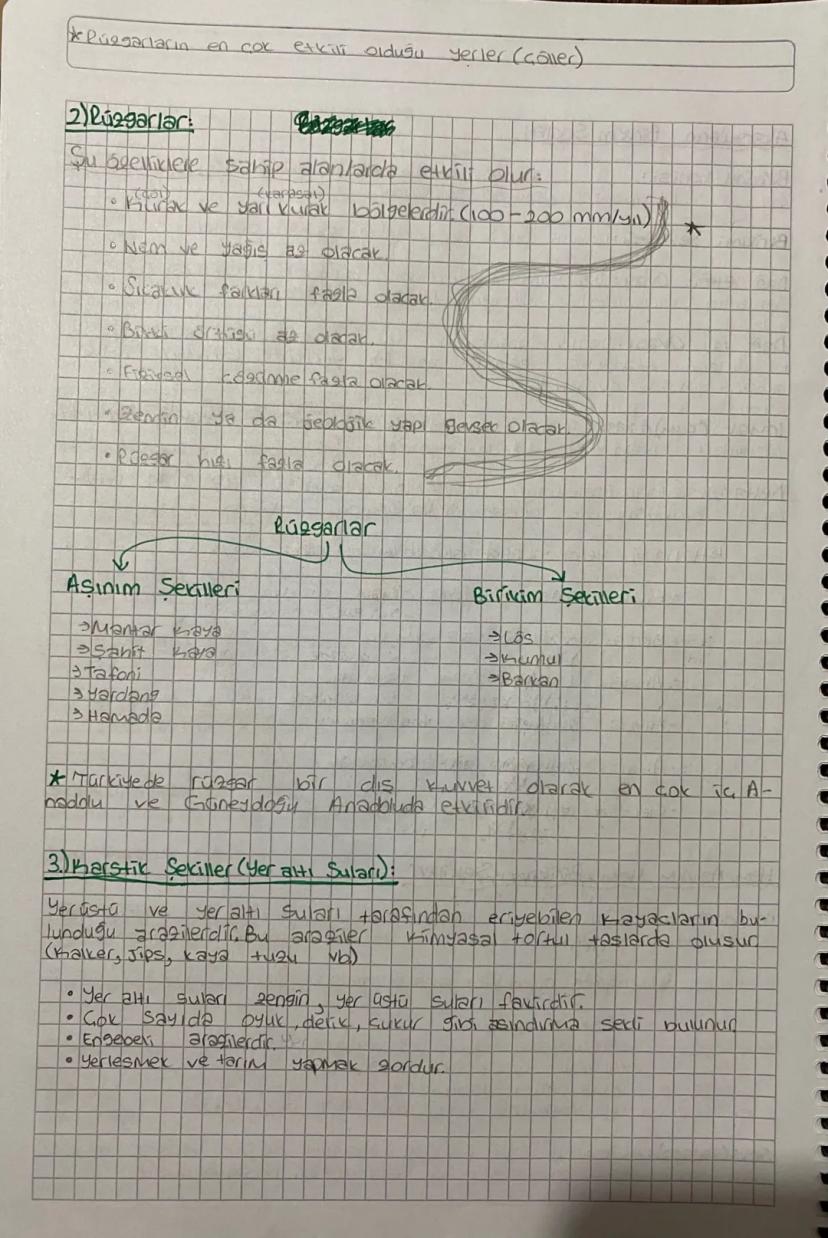 *Rüzgarların en çok etkili olduğu yerler (Çöller)
2) Rüzgarlar:
Şu özelliklere sahip alanlarda etkili olur:
(çöl) (karasal)
• Kurak ve yarı kurak bölgelerdir. (100-200 mm/yıl) *
• Nem ve yağış az olacak.
• Sıcaklık farkları fazla olacak.
• Bitki örtüsü az olacak.
• Fiziksel çözünme fazla olacak.
• Zemin ya da jeolojik yapı gevşek olacak.
• Rüzgar hızı fazla olacak.
Rüzgarlar
Aşınım Şekilleri
→Mantar Kaya
→Şahit Kaya
→Tafoni
→Yardang
→Hamada
Birikim Şekilleri
→Lös
→Kumul
→Barkan
* Türkiyede rüzgar bir dış kuvvet olarak en çok iç A-
nadolu ve Güneydoğu Anadoluda etkilidir.
3.) Karstik Şekiller (Yer altı Suları):
Yerüstü ve yeraltı suları tarafından eriyebilen kayaçların bu-
lunduğu arazilerdir. Bu araziler kimyasal tortul taşlarda oluşur
(Kalker, Jips, kaya tuzu vb)
• Yer altı suları zengin, yer üstü suları fakirdir.
• Çok sayıda oyuk, delik, çukur gibi aşındırma şekli bulunur
• Engebeli arazilerdir.
• Yerleşmek ve tarım yapmak zordur.